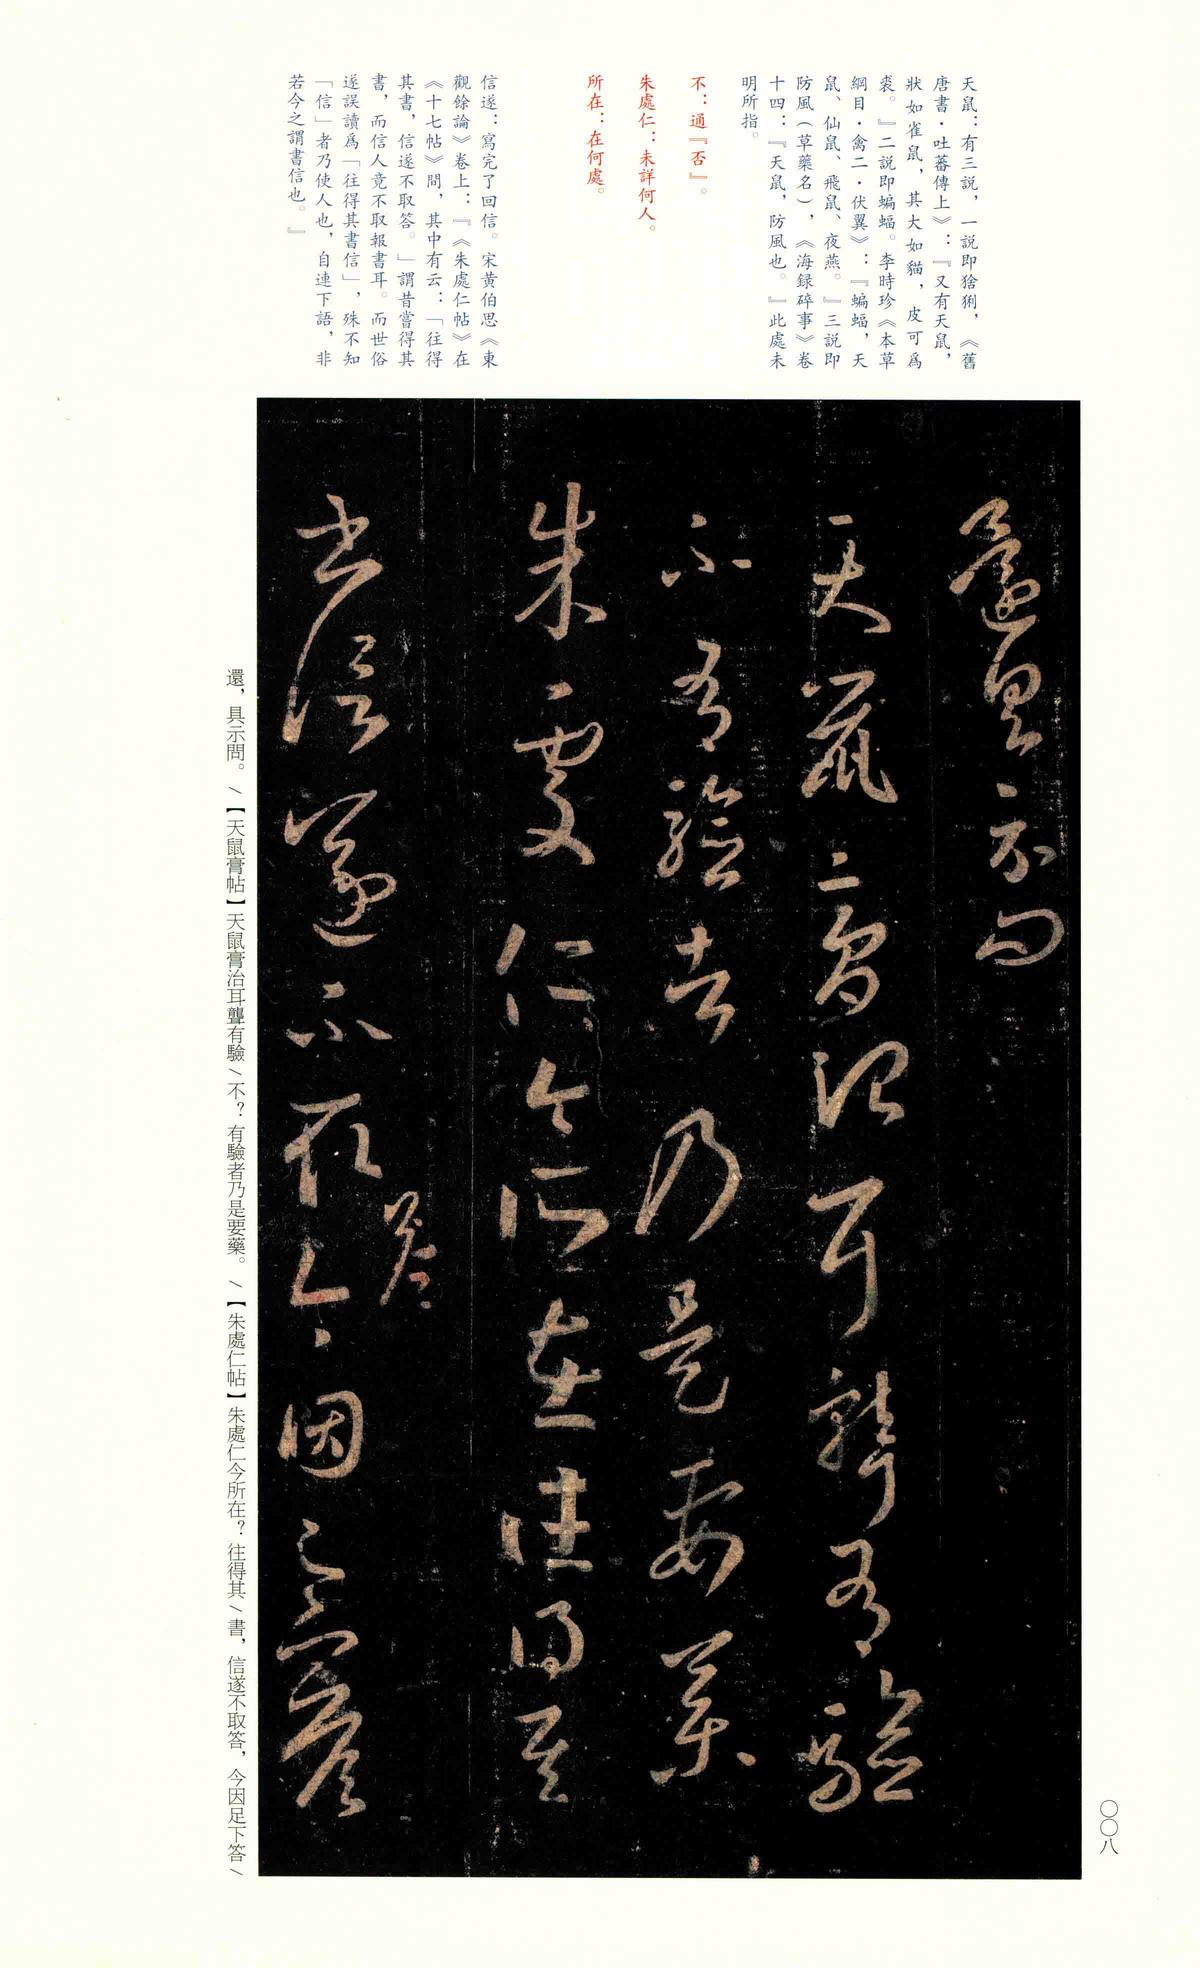 天鼠：有三説，一説即猞猁，《舊
唐書·吐蕃傳上》：『又有天鼠，
狀如雀鼠，其大如貓，皮可爲
裘。』二説即蝙蝠。李時珍《本草
綱目·禽二·伏翼》：『蝙蝠，天
鼠、仙鼠、飛鼠、夜燕。』三説即
防風（草藥名），《海録碎事》卷
十四：『天鼠，防風也。』此處未
明所指。
不：通『否』。
朱處仁：未詳何人。
所在：在何處。
信遂：寫完了回信。宋黄伯思《東
觀餘論》卷上：『《朱處仁帖》在
《十七帖》間，其中有云：「往得
其書，信遂不取答。」謂昔嘗得其
書，而信人竟不取報書耳。而世俗
遂誤讀爲「往得其書信」，殊不知
「信」者乃使人也，自連下語，非
若今之謂書信也。』
還具示問
天鼠膏治耳聾有驗
不有驗者乃是要藥
朱處仁今所在往得其
書信遂不取答今因足下答
還，具示問。\【天鼠膏帖】天鼠膏治耳聾有驗\不？有驗者乃是要藥。\【朱處仁帖】朱處仁今所在？往得其\書，信遂不取答，今因足下答\
〇〇八